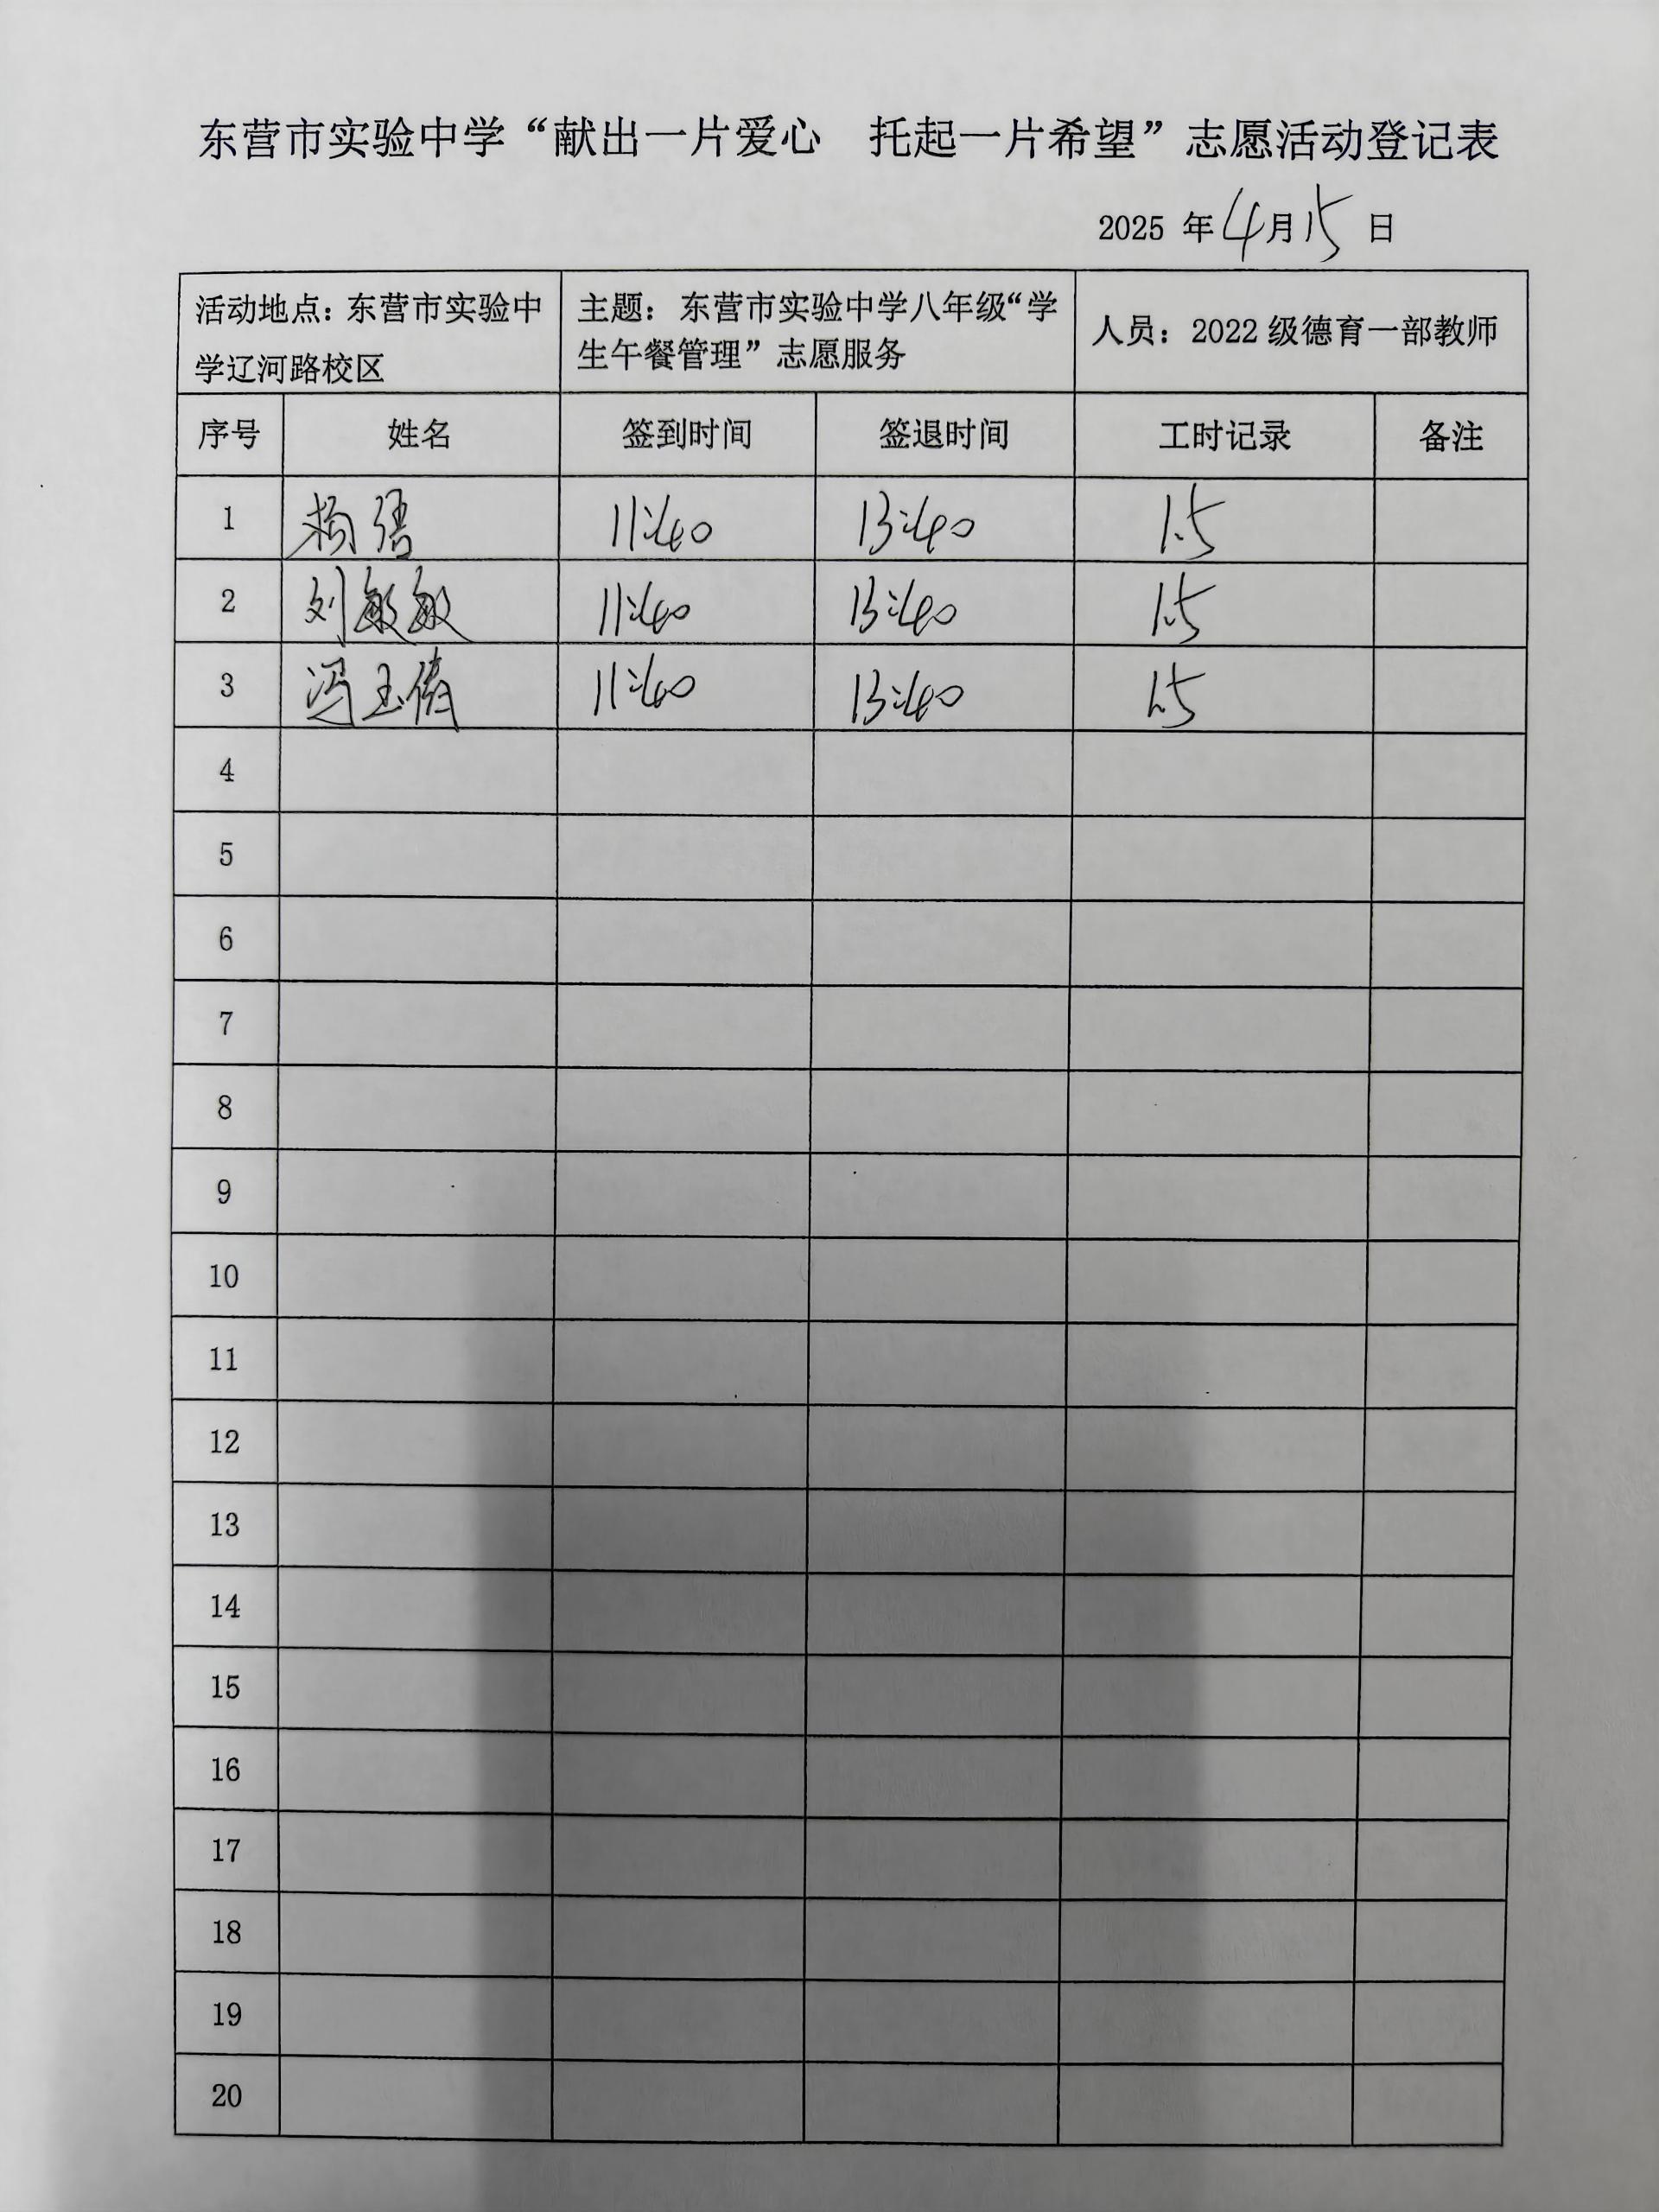 东营市实验中学“献出一片爱心 托起一片希望”志愿活动登记表
2025 年 4 月 15 日
活动地点：东营市实验中
学辽河路校区
主题：东营市实验中学八年级“学
生午餐管理”志愿服务
人员：2022 级德育一部教师
序号 姓名 签到时间 签退时间 工时记录 备注
1 杨 11:40 13:40 1.5
2 刘敏敏 11:40 13:40 1.5
3 冯玉倩 11:40 13:40 1.5
4
5
6
7
8
9
10
11
12
13
14
15
16
17
18
19
20